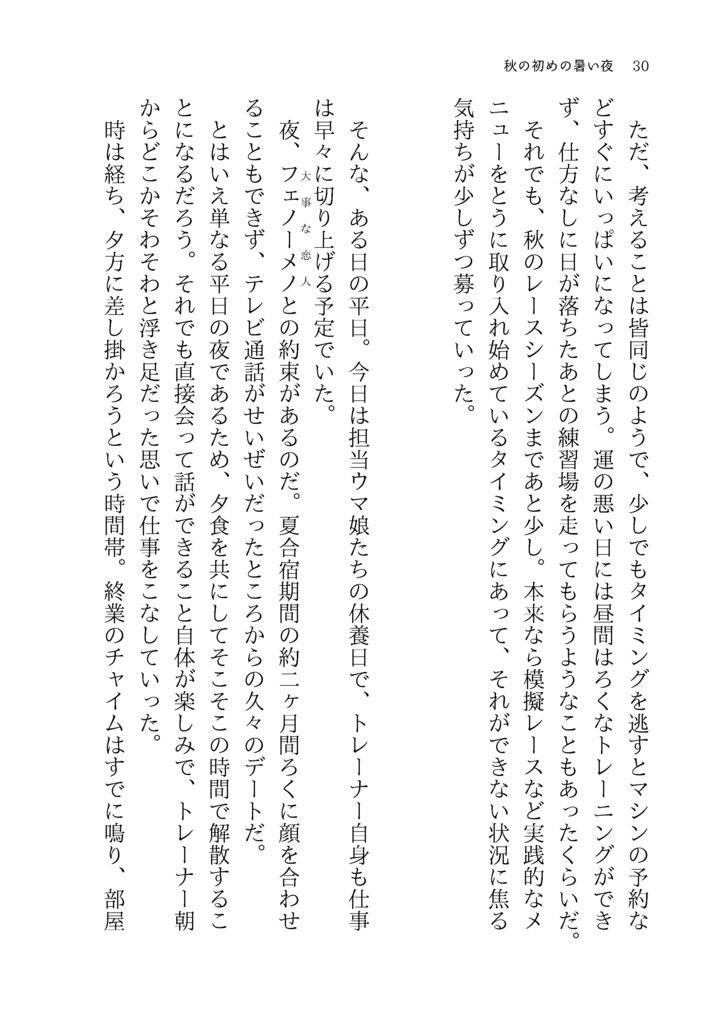 秋の初めの暑い夜　30
　ただ、考えることは皆同じのようで、少しでもタイミングを逃すとマシンの予約な
どすぐにいっぱいになってしまう。運の悪い日には昼間はろくなトレーニングができ
ず、仕方なしに日が落ちたあとの練習場を走ってもらうようなこともあったくらいだ。
　それでも、秋のレースシーズンまであと少し。本来なら模擬レースなど実践的なメ
ニューをとうに取り入れ始めているタイミングにあって、それができない状況に焦る
気持ちが少しずつ募っていった。
　そんな、ある日の平日。今日は担当ウマ娘たちの休養日で、トレーナー自身も仕事
は早々に切り上げる予定でいた。
大事な恋人
　夜、フェノーメノとの約束があるのだ。夏合宿期間の約二ヶ月間ろくに顔を合わせ
ることもできず、テレビ通話がせいぜいだったところからの久々のデートだ。
　とはいえ単なる平日の夜であるため、夕食を共にしてそこそこの時間で解散するこ
とになるだろう。それでも直接会って話ができること自体が楽しみで、トレーナー朝
からどこかそわそわと浮き足だった思いで仕事をこなしていった。
　時は経ち、夕方に差し掛かろうという時間帯。終業のチャイムはすでに鳴り、部屋